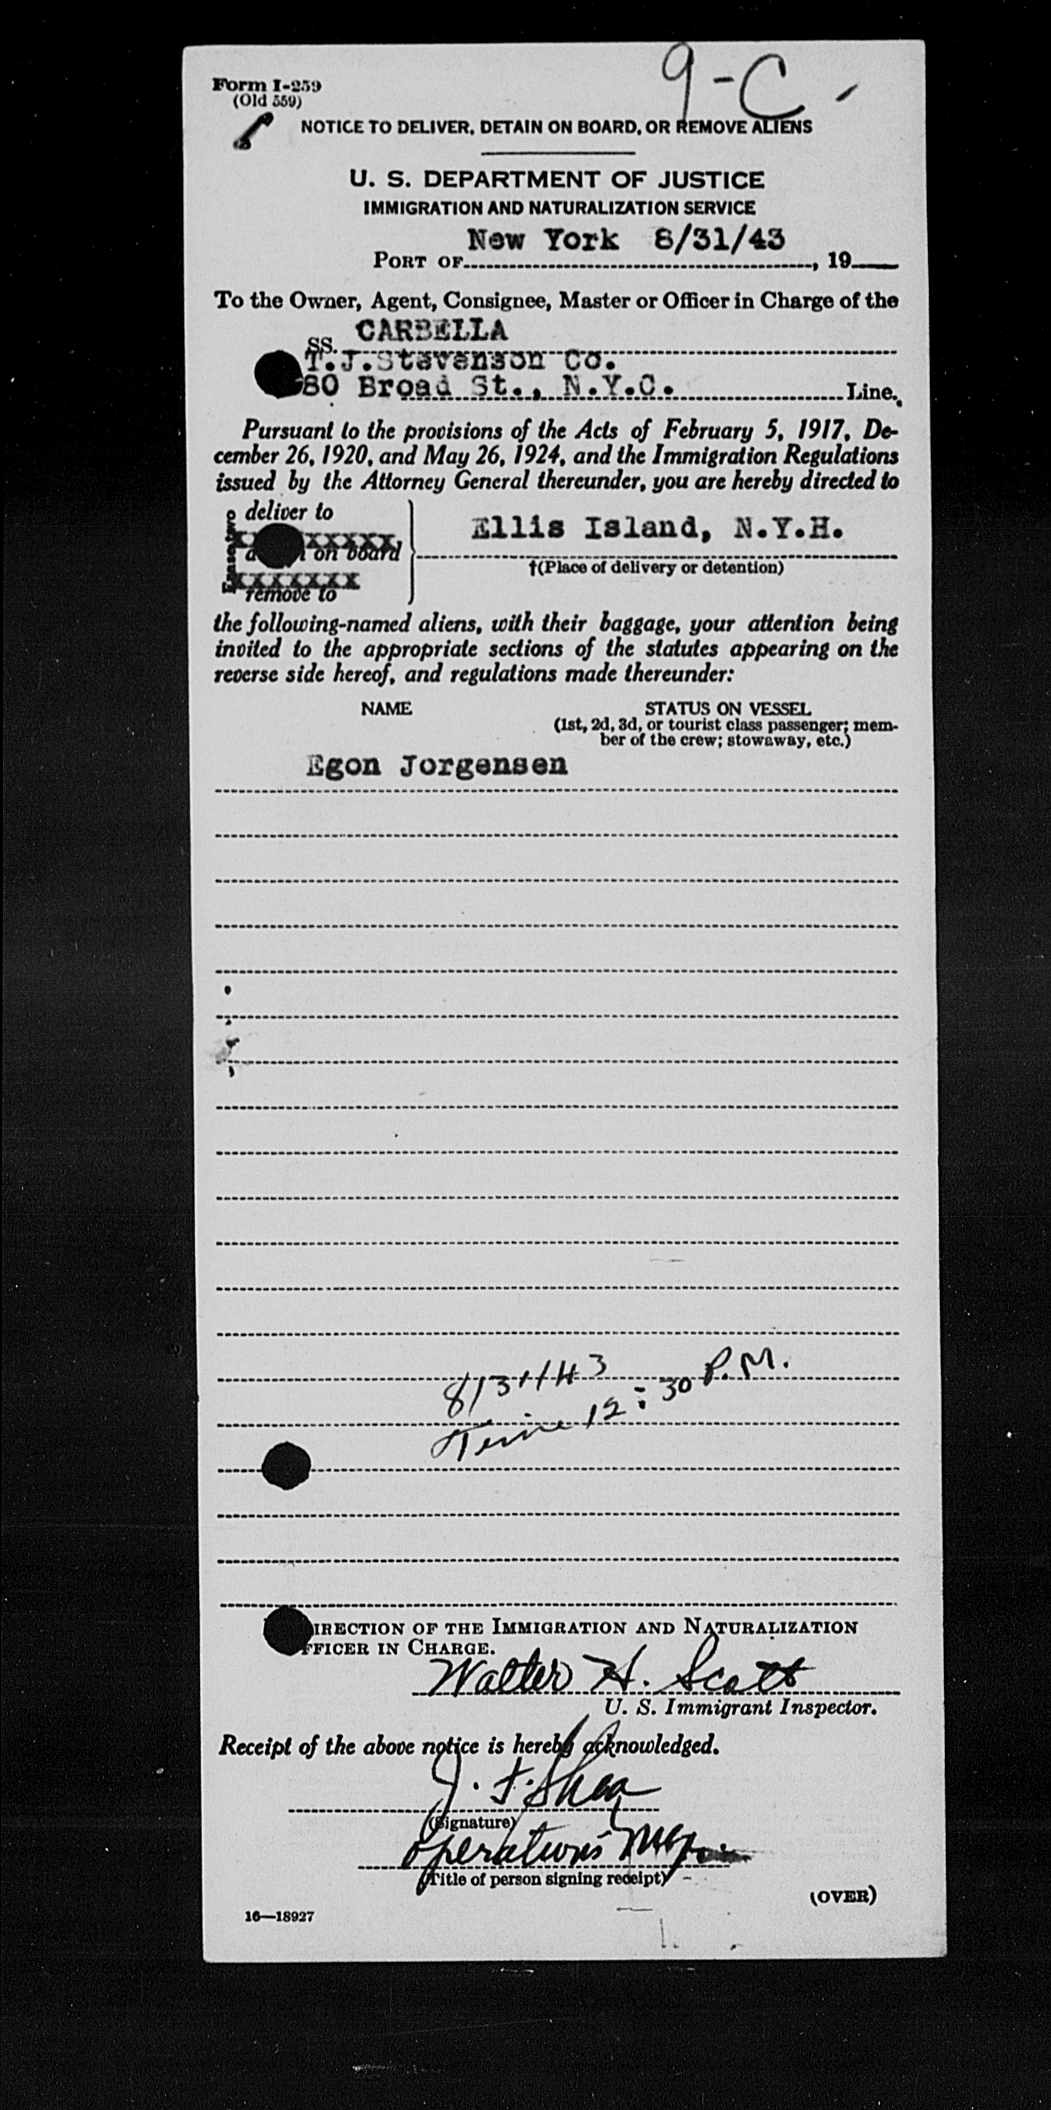 9-C-
Form I-259
(Old 559)
NOTICE TO DELIVER, DETAIN ON BOARD, OR REMOVE ALIENS
U. S. DEPARTMENT OF JUSTICE
IMMIGRATION AND NATURALIZATION SERVICE
New York 8/31/43
PORT OF , 19
To the Owner, Agent, Consignee, Master or Officer in Charge of the
SS. CARBELLA
T.J.Stevenson Co.
80 Broad St., N.Y.C. Line.
Pursuant to the provisions of the Acts of February 5, 1917, De-
cember 26, 1920, and May 26, 1924, and the Immigration Regulations
issued by the Attorney General thereunder, you are hereby directed to
deliver to
Ellis Island, N.Y.H.
on board
†(Place of delivery or detention)
remove to
the following-named aliens, with their baggage, your attention being
invited to the appropriate sections of the statutes appearing on the
reverse side hereof, and regulations made thereunder:
NAME STATUS ON VESSEL
(1st, 2d, 3d, or tourist class passenger; mem-
ber of the crew; stowaway, etc.)
Egon Jorgensen
8/31/43
Time 12:30 P.M.
IRECTION OF THE IMMIGRATION AND NATURALIZATION
FFICER IN CHARGE.
Walter H. Scott
U. S. Immigrant Inspector.
Receipt of the above notice is hereby acknowledged.
J. F. Shea
(Signature)
Operations Mgr.
(Title of person signing receipt)
(OVER)
16—18927